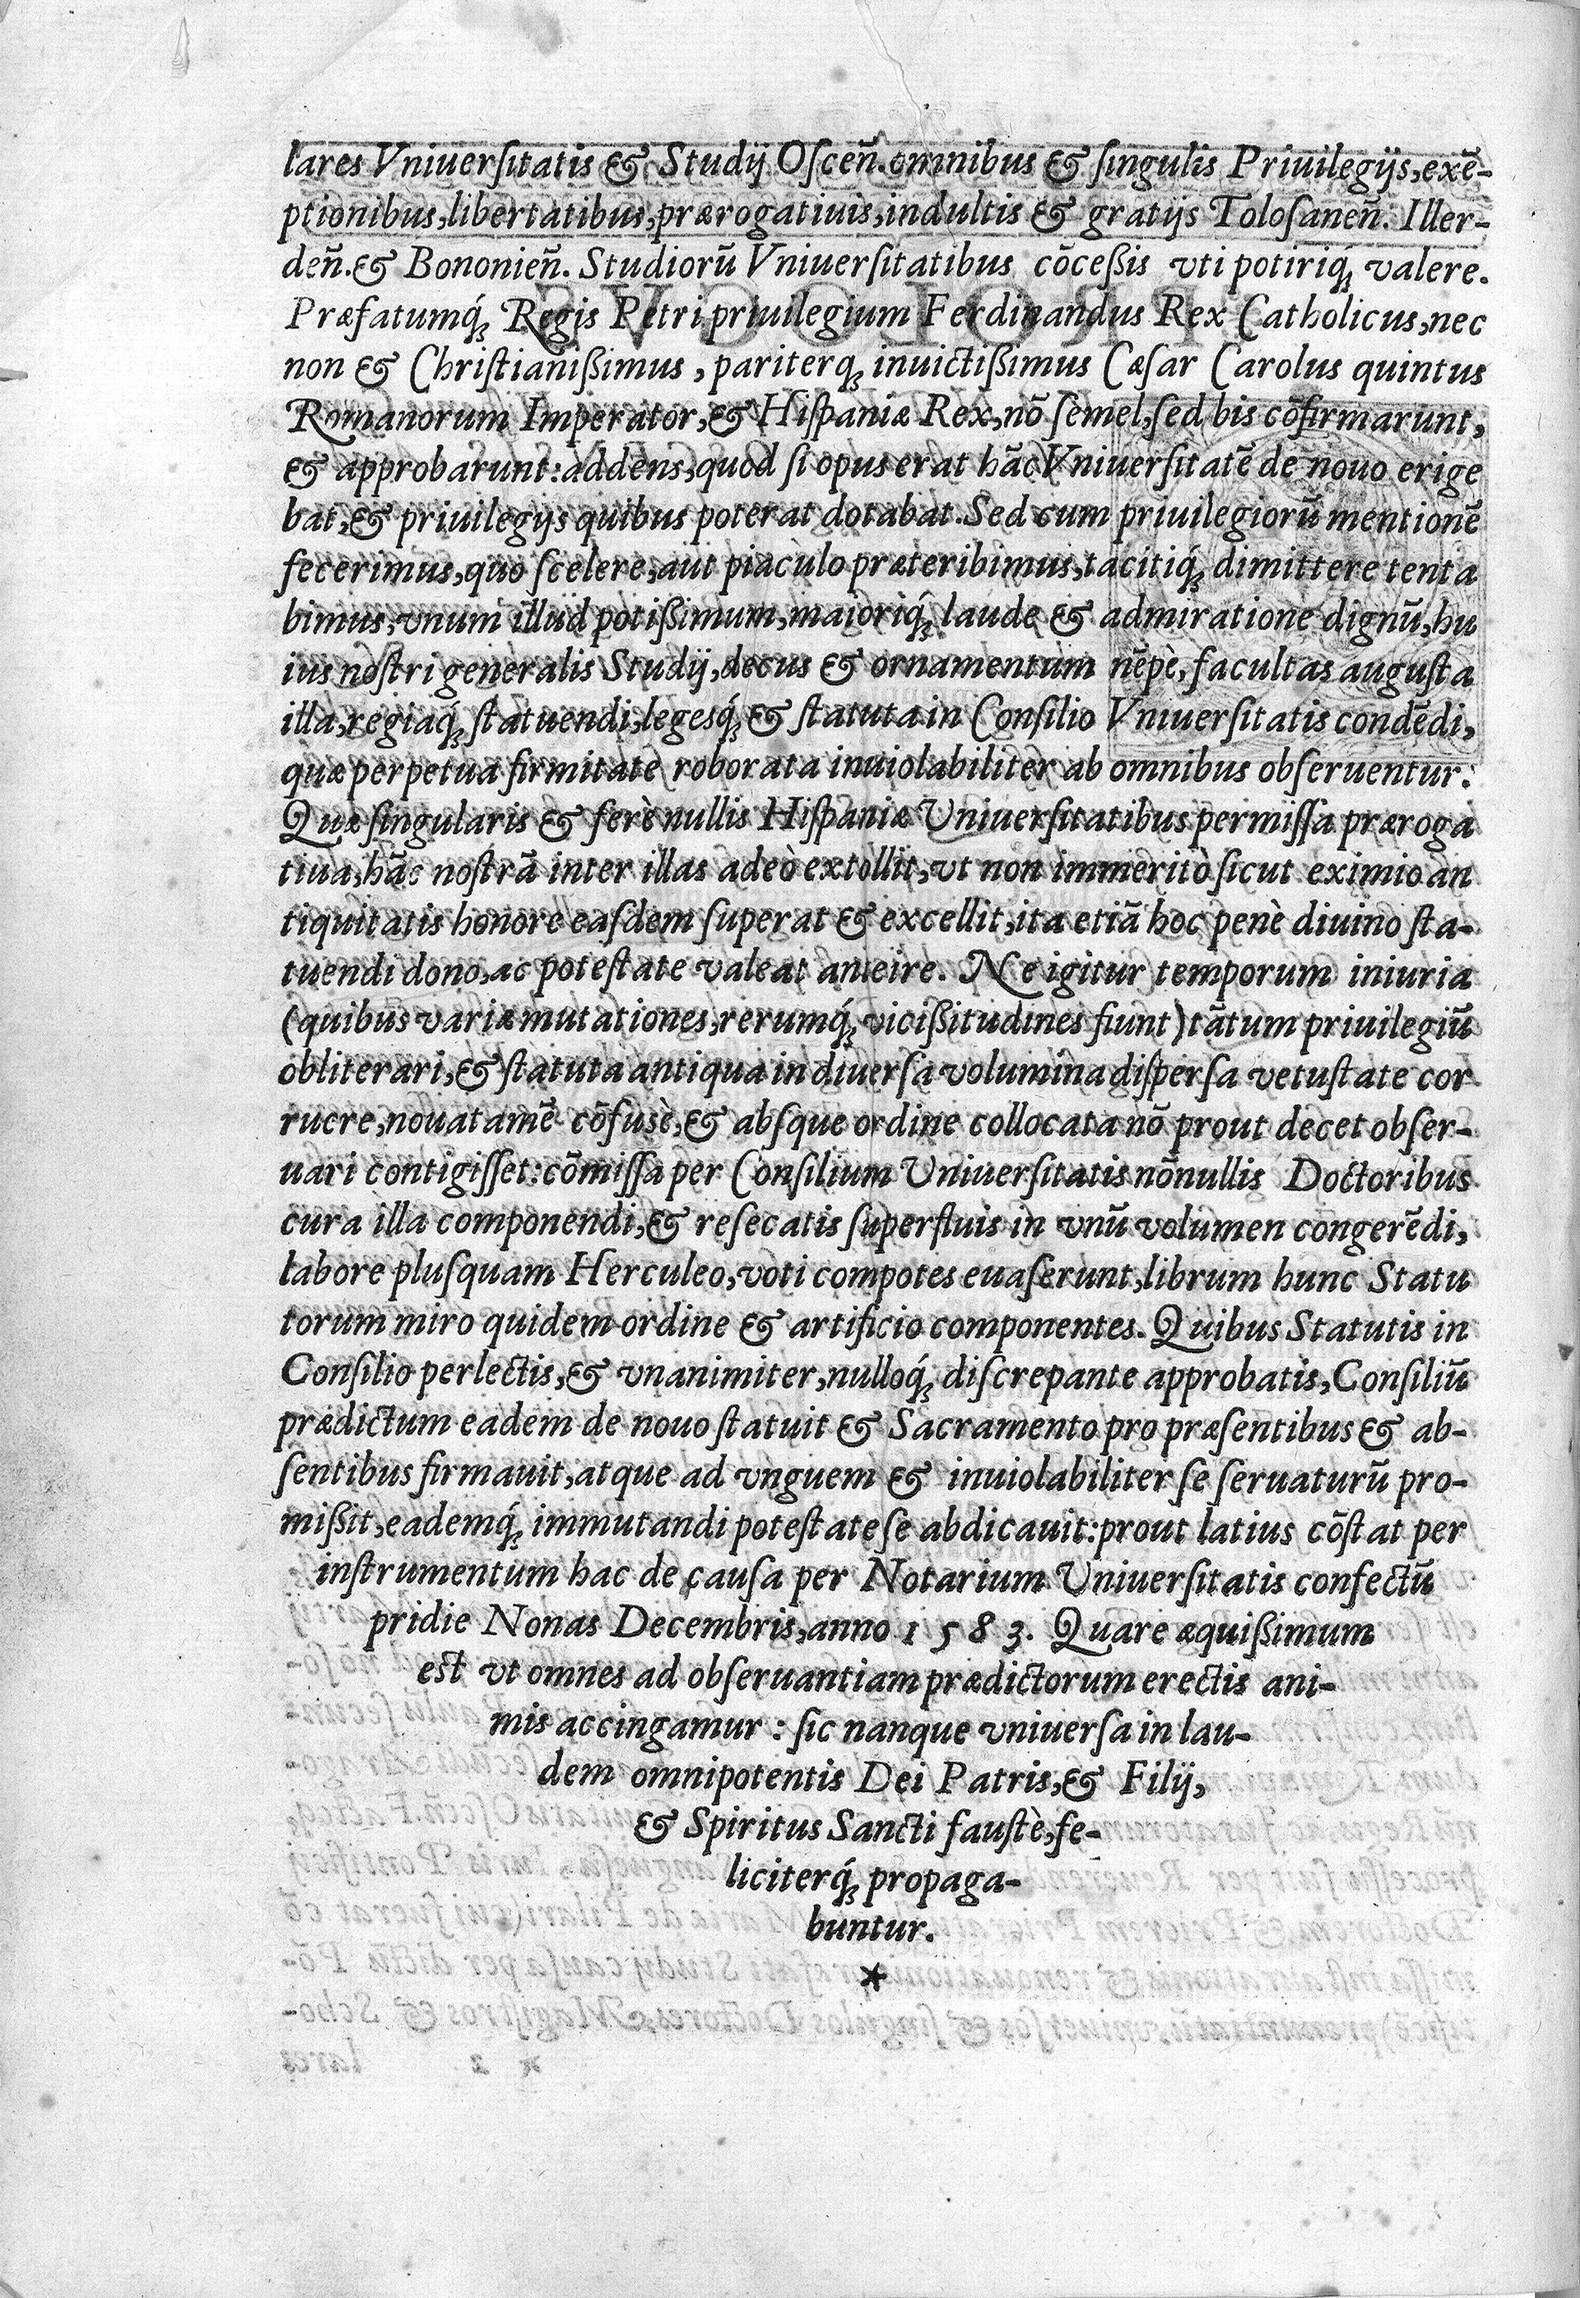 lares Vniuerſitatis & Studij Oſcen̄. omnibus & ſingulis Priuilegijs, exē-
ptionibus, libertatibus, prærogatiuis, indultis & gratijs Toloſanen̄. Iller-
den̄. & Bononien̄. Studiorū Vniuerſitatibus cōceßis vti potiriq́; valere.
Præfatumq́; Regis Petri priuilegium Ferdinandus Rex Catholicus, nec
non & Chriſtianißimus, pariterq; inuictißimus Cæſar Carolus quintus
Romanorum Imperator, & Hiſpaniæ Rex, nō ſemel, ſed bis cōfirmarunt,
& approbarunt: addens, quod ſi opus erat hāc Vniuerſitatē de nouo erige
bat, & priuilegijs quibus poterat dotabat. Sed cum priuilegiorū mentionē
fecerimus, quo ſcelere, aut piaculo præteribimus, tacitiq́; dimittere tenta
bimus, vnum illud potißimum, maioriq́; laude & admiratione dignū, hu
ius noſtri generalis Studij, decus & ornamentum nēpè, facultas auguſta
illa, regiaq́; ſtatuendi, legesq́; & ſtatuta in Conſilio Vniuerſitatis condēdi,
quæ perpetua firmitate roborata inuiolabiliter ab omnibus obſeruentur.
Quæ ſingularis & ferè nullis Hiſpaniæ Uniuerſitatibus permiſſa præroga
tiua, hāc noſtrā inter illas adeò extollit, vt non immeritò ſicut eximio an
tiquitatis honore eaſdem ſuperat & excellit, ita etiā hoc penè diuino ſta-
tuendi dono, ac poteſtate valeat anteire. Ne igitur temporum iniuria
(quibus variæ mutationes, rerumq́; vicißitudines fiunt) tātum priuilegiū
obliterari, & ſtatuta antiqua in diuerſa volumina diſperſa vetuſtate cor
ruere, noua tamē cōfusè, & abſque ordine collocata nō prout decet obſer-
uari contigiſſet: cōmiſſa per Conſilium Uniuerſitatis nōnullis Doctoribus
cura illa componendi, & reſecatis ſuperfluis in vnū volumen congerēdi,
labore pluſquam Herculeo, voti compotes euaſerunt, librum hunc Statu
torum miro quidem ordine & artificio componentes. Quibus Statutis in
Conſilio perlectis, & vnanimiter, nulloq́; diſcrepante approbatis, Conſiliū
prædictum eadem de nouo ſtatuit & Sacramento pro præſentibus & ab-
ſentibus firmauit, atque ad vnguem & inuiolabiliter ſe ſeruaturū pro-
mißit, eademq́; immutandi poteſtate ſe abdicauit: prout latius cōſtat per
inſtrumentum hac de cauſa per Notarium Uniuerſitatis confectū
pridie Nonas Decembris, anno 1583. Quare æquißimum
eſt vt omnes ad obſeruantiam prædictorum erectis ani-
mis accingamur: ſic nanque vniuerſa in lau-
dem omnipotentis Dei Patris, & Filij,
& Spiritus Sancti fauſtè, fe-
liciterq́; propaga-
buntur.
*